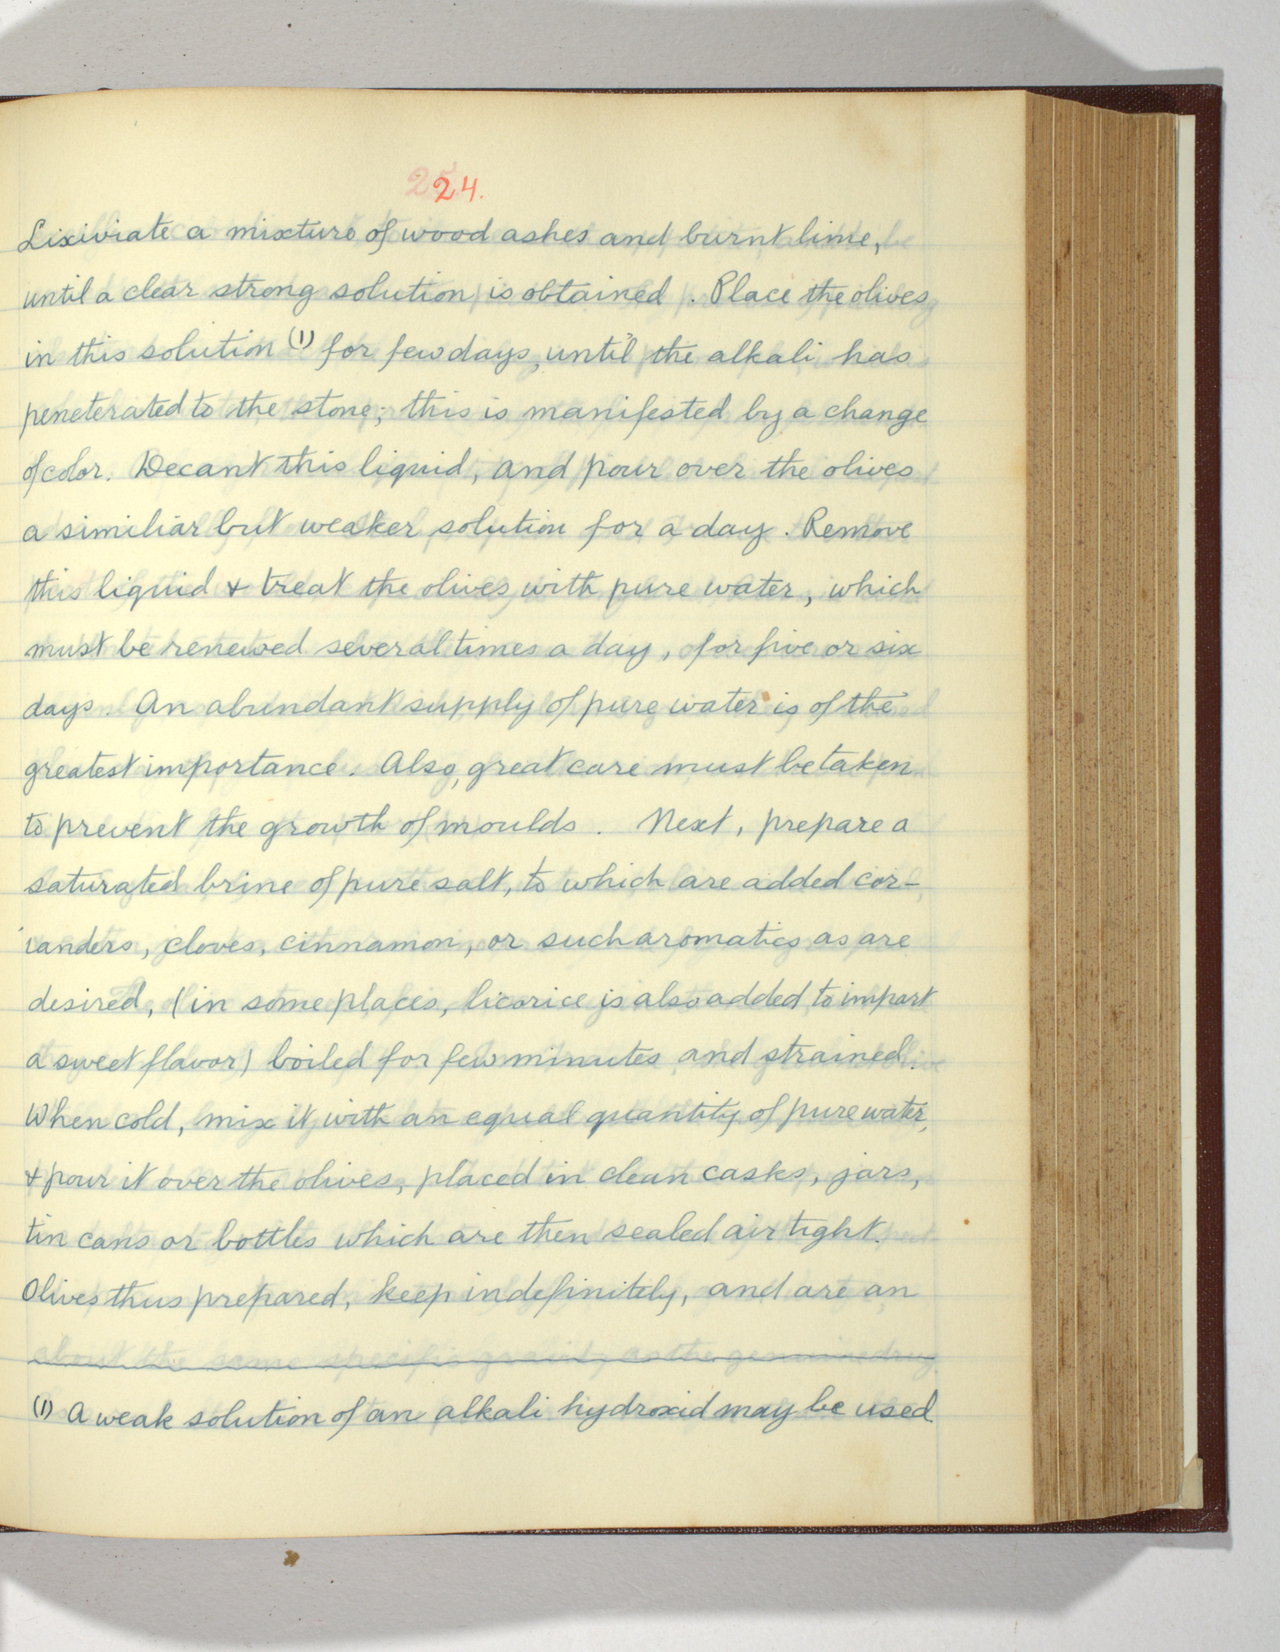 24.
Lixiviate a mixture of wood ashes and burnt lime,
until a clear strong solution is obtained. Place the olives
in this solution (1) for few days, until the alkali has
peneterated to the stone; this is manifested by a change
of color. Decant this liquid, and pour over the olives
a similiar but weaker solution for a day. Remove
this liquid & treat the olives with pure water, which
must be renewed several times a day, for five or six
days. An abundant supply of pure water is of the
greatest importance. Also, great care must be taken
to prevent the growth of moulds. Next, prepare a
saturated brine of pure salt, to which are added cor-
ianders, cloves, cinnamon, or such aromatics as are
desired, (in some places, licorice is also added to impart
a sweet flavor) boiled for few minutes and strained.
When cold, mix it with an equal quantity of pure water,
& pour it over the olives, placed in clean casks, jars,
tin cans or bottles which are then sealed air tight.
Olives thus prepared, keep indefinitely, and are an
(1) A weak solution of an alkali hydroxid may be used